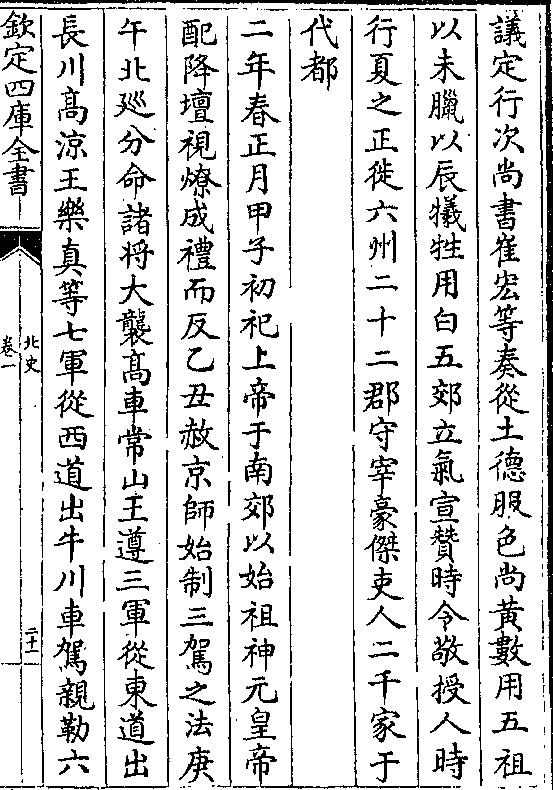 議定行次尚書崔宏等奏從土德服色尚黃數用五祖
以未臘以辰犧牲用白五郊立氣宣賛時令敬授人時
行夏之正徙六州二十二郡守宰豪傑吏人二千家于
代都
二年春正月甲子初祀上帝于南郊以始祖神元皇帝
配降壇視燎成禮而反乙丑赦京師始制三駕之法庚
午北廵分命諸将大襲髙車常山王遵三軍從東道出
長川髙涼王樂真等七軍從西道出牛川車駕親勒六
欽定四庫全書
北史
卷一
二十一